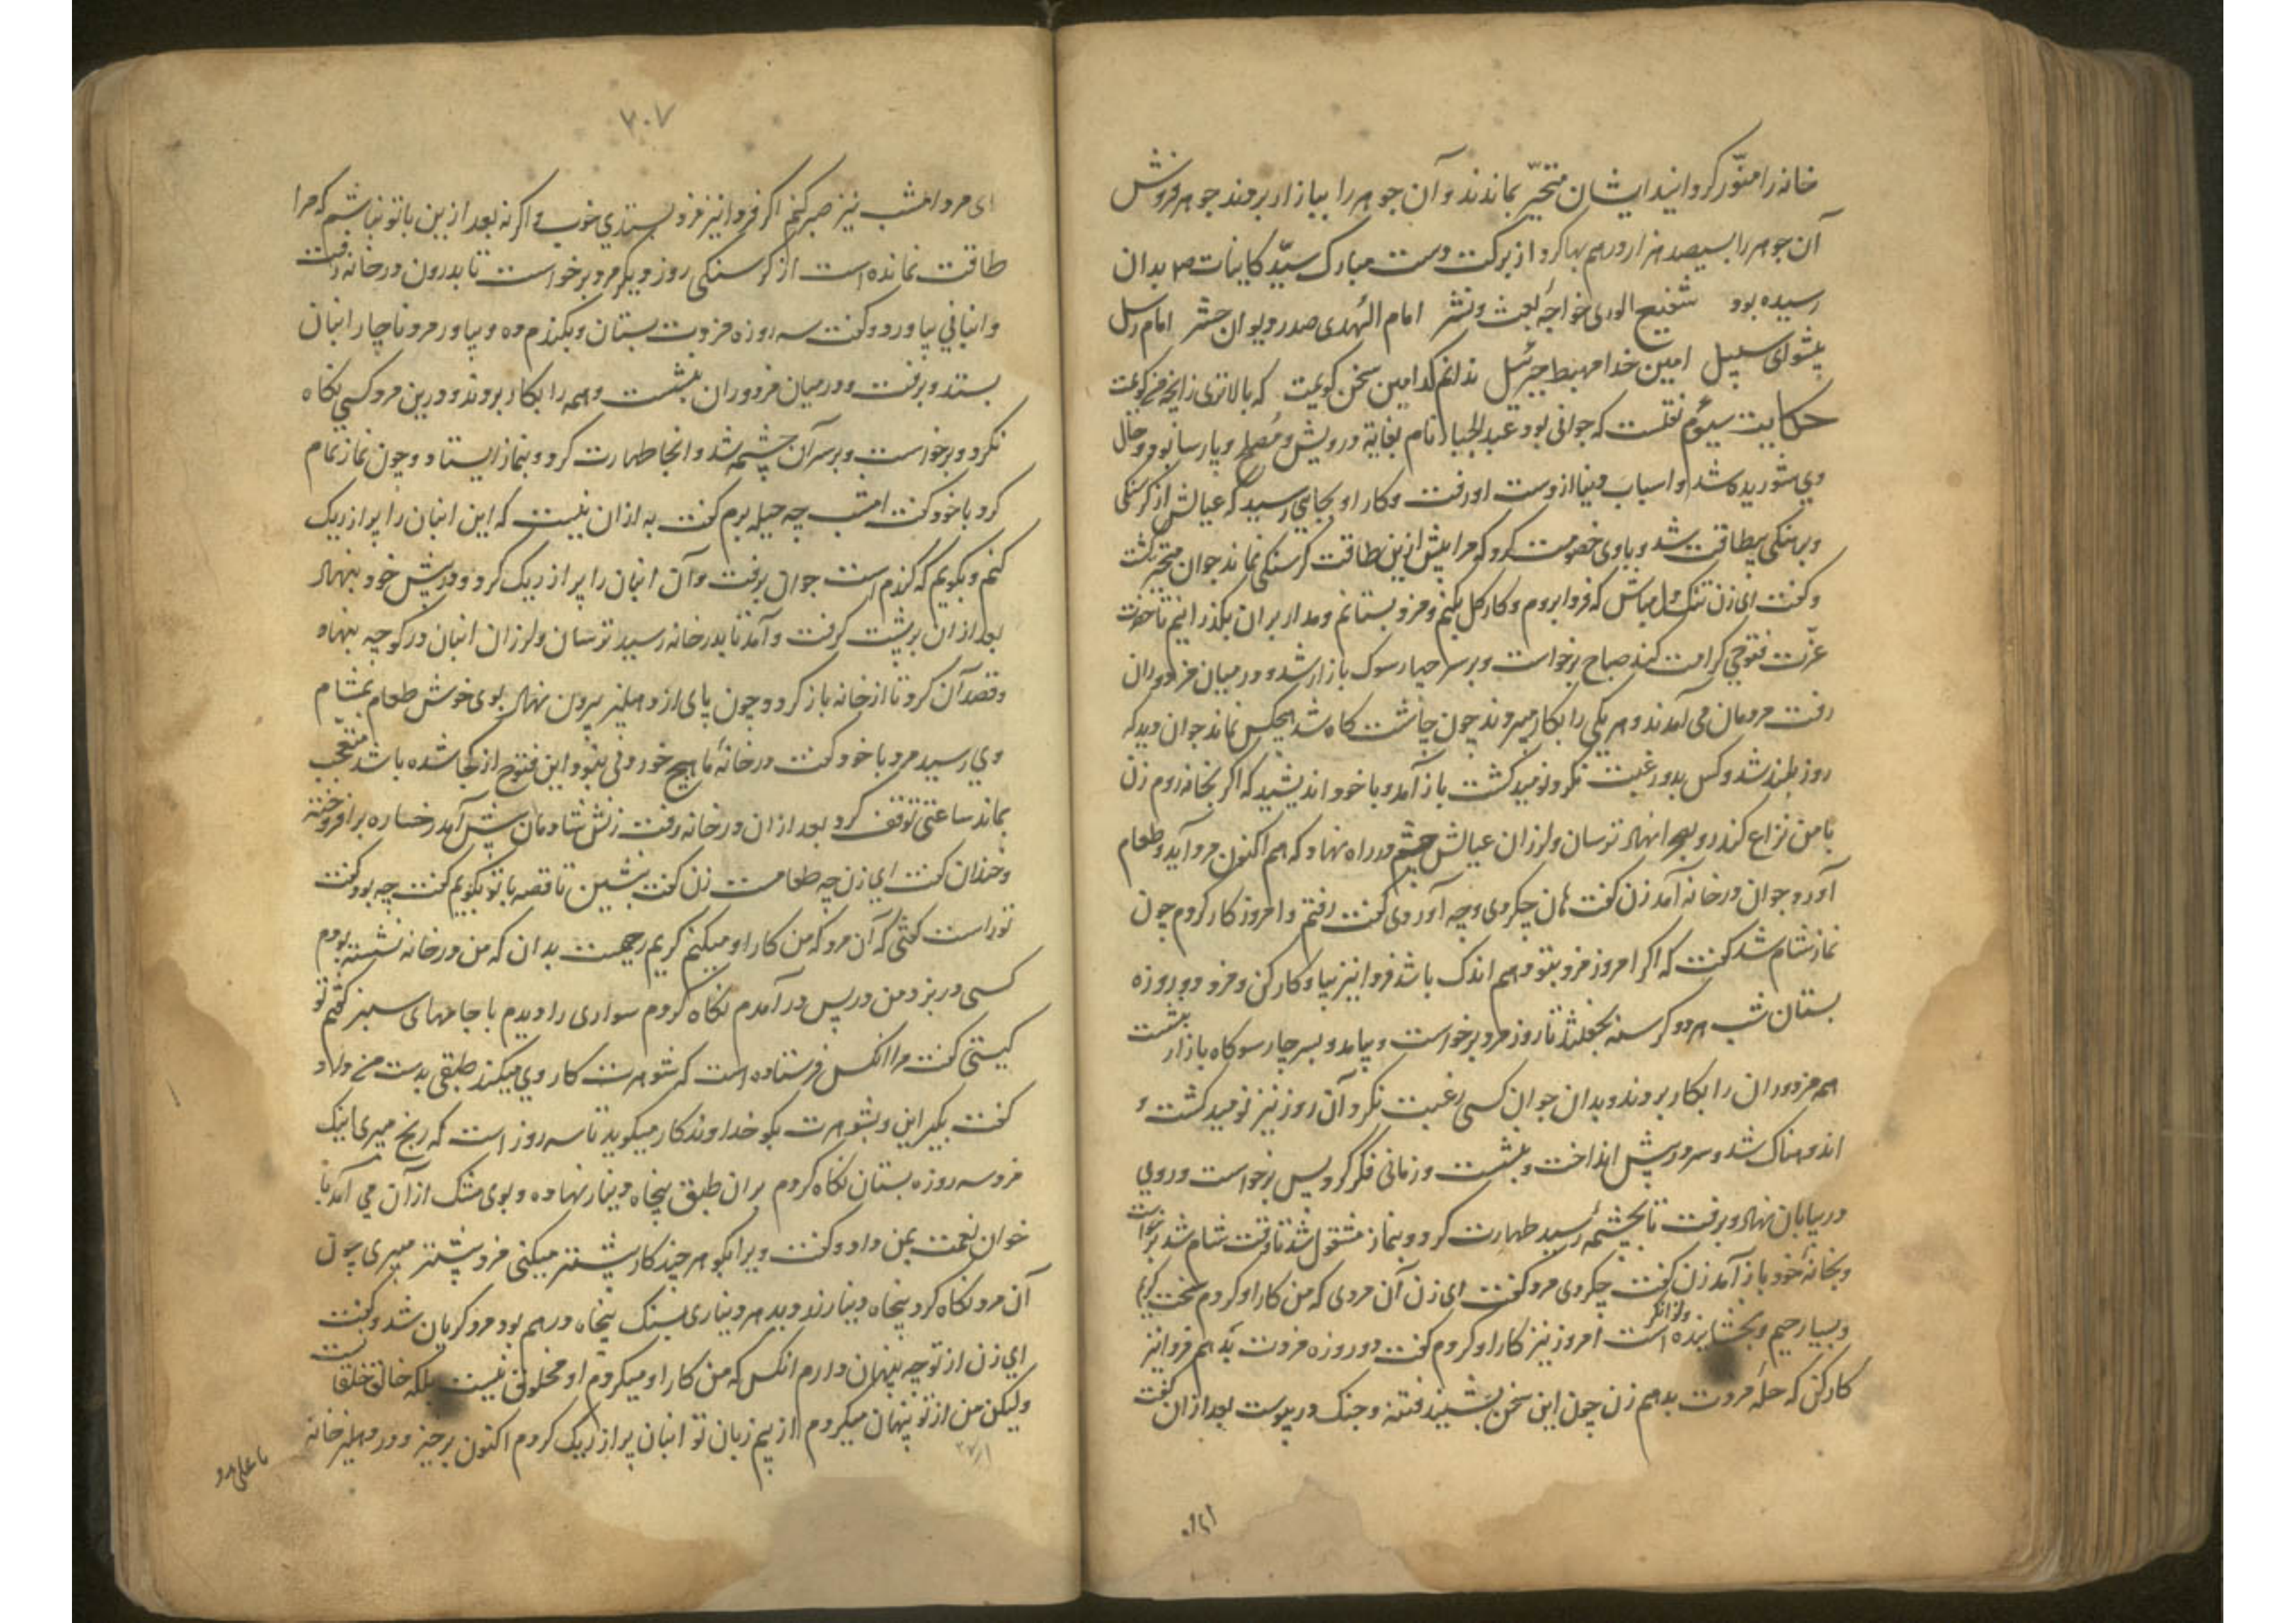 خانه را منوّر کردانید ایشان متحیّر بماندند و آن جوهر را ببازار بردند جوهر فروش
آن جوهر را بسیصد هزار درهم بها کرد از برکت دست مبارک سیّد کاینات ص بدان
رسیده بود شفیع الوری خواجهٔ بعث و نشر امام الهدی صدر دیوان حشر امام رسل
پیشوای سبیل امین خدا مهبط جبرئیل ندانم کدامین سخن کویمت که بالاتری زانچه من کویمت
حکایت سیوم نقلست که جوانی بود عبد الجبار نام بغایة درویش و مصلح و پارسا بود و حال
وی شوریده شد و اسباب دنیا از دست او رفت و کار او بجایی رسید که عیالش از کرسنکی
و برهنکی بیطاقت شد و با وی خصومت کرد که مرا بیش ازین طاقت کرسنکی نماند جوان متحیر کشت
و کفت ای زن تنک دل مباش که فردا بروم و کار کل بکنم و مزد بستانم و مدار بران بکذرانیم تا حضرت
عزّت فتوحی کرامت کند صباح برخواست و بر سر چهار سوک بازار شد و در میان مزدوران
رفت مردمان می آمدند و هر یکی را بکار میبردند چون چاشت کاه شد هیچکس نماند جوان دید که
روز بلند شد و کس بدو رغبت نکرد نومید کشت باز آمد و با خود اندیشید که اکر بخانه روم زن
با من نزاع کند رو بصحرا نهاد ترسان و لرزان عیالش چشم در راه نهاد که هم اکنون مرد آید و طعام
آورد جوان در خانه آمد زن کفت هان چکردی و چه آوردی کفت رفتم و امروز کار کردم چون
نماز شام شد کفت که اکر امروز مزد بتو دهم اندک باشد فردا نیز بیا و کار کن و مزد دو روزه
بستان شب هر دو کرسنه بخفتند تا روز مرد برخواست و بیامد و بسر چار سوکاه بازار بنشست
همه مزدوران را بکار بردند و بدان جوان کسی رغبت نکرد آن روز نیز نومید کشت و
اندوهناک شد و سر در پیش انداخت و بنشست و زمانی فکر کرد پس برخواست و روی
در بیابان نهاد و برفت تا بچشمهٔ رسید طهارت کرد و بنماز مشغول شد تا وقت شام شد برخواست
و بخانهٔ خود باز آمد زن کفت چکردی مرد کفت ای زن آن مردی که من کار او کردم سخت کریم
و بسیار رحیم و بخشاینده و توانکر است امروز نیز کار او کردم کفت دو روزه مزدت بدهم فردا نیز
کار کن که جمله مزدت بدهم زن چون این سخن بشنید فتنه و جنک در پیوست بعد از آن کفت
۷۰۷
ای مرد امشب نیز صبر کنم اکر فردا نیز مزد بستدی خوب و اکر نه بعد ازین با تو نباشم که مرا
طاقت نمانده است از کرسنکی روز دیکر مرد برخواست تا بدرون در خانه رفت
و انبانی بیاورد و کفت سه روزه مزدت بستان و بکندم ده و بیاور مرد ناچار انبان
بستد و برفت و در میان مزدوران بنشست و همه را بکار بردند و درین مرد کسی نکاه
نکرد و برخواست و بر سر آن چشمه شد و آنجا طهارت کرد و بنماز ایستاد و چون نماز تمام
کرد با خود کفت امشب چه حیله برم کفت به از آن نیست که این انبان را پر از ریک
کنم و بکویم که کندم است جوان برفت و آن انبان را پر از ریک کرد و در پیش خود بنهاد
بعد از ان برپشت کرفت و آمد تا بدر خانه رسید ترسان و لرزان انبان در کوچه بنهاد
و قصد آن کرد تا از خانه باز کردد چون پای از دهلیز بیرون نهاد بوی خوش طعام بمشام
وی رسید مرد با خود کفت در خانهٔ ما هیچ خوردنی نبود این فتوح از کجا شده باشد متعجّب
بماند ساعتی توقف کرد بعد از ان در خانه رفت زنش شادمان پیش آمد رخساره برافروخته
و خندان کفت ای زن چه طعامست زن کفت بنشین تا قصه با تو بکویم کفت چه بود کفت
تو راست کفتی که آن مرد که من کار او میکنم کریم رحیمست بدان که من در خانه نشسته بودم
کسی در بزد من در پس در آمدم نکاه کردم سواری را دیدم با جامهای سبز کفتم تو
کیستی کفت مرا آنکس فرستاده است که شوهرت کار وی میکند طبقی بدست من داد و
کفت بکیر این و بشوهرت بکو خداوند کار میکوید تا سه روز است که رنج میبری اینک
مزد سه روزه بستان نکاه کردم بران طبق پنجاه دینار نهاده و بوی مشک از آن می آمد با
خوان نعمت بمن داد و کفت ویرا بکو هر چند کار بیشتر میکنی مزد بیشتر میبری چون
آن مرد نکاه کرد پنجاه دینار زر دید هر دیناری بسنک پنجاه درهم بود مرد کریان شد و کفت
ای زن از تو چه پنهان دارم آنکس که من کار او میکردم او مخلوق نیست بلکه خالق خلقانست
و لیکن من از تو پنهان میکردم از بیم زبان تو انبان پر از ریک کردم اکنون برخیز و در دهلیز خانه
یا علی مدد